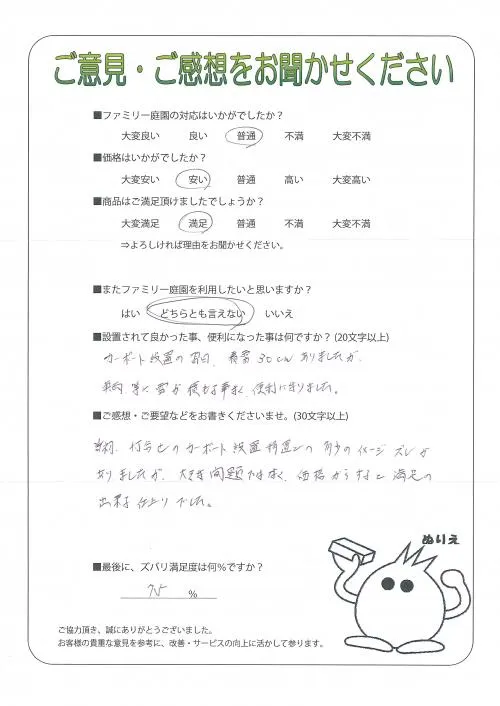 ご意見・ご感想をお聞かせください
■ファミリー庭園の対応はいかがでしたか？
大変良い 良い 普通 不満 大変不満
■価格はいかがでしたか？
大変安い 安い 普通 高い 大変高い
■商品はご満足頂けましたでしょうか？
大変満足 満足 普通 不満 大変不満
⇒よろしければ理由をお聞かせください。
■またファミリー庭園を利用したいと思いますか？
はい どちらとも言えない いいえ
■設置されて良かった事、便利になった事は何ですか？(20文字以上)
カーポート設置の翌日、積雪30cmありましたが、
車に雪が積もる事なく、便利になりました。
■ご感想・ご要望などをお書きくださいませ。(30文字以上)
当初、打合せのカーポート設置位置との多少のイメージズレが
ありましたが、大きな問題ではなく、価格からすると満足の
出来る仕上りでした。
ぬりえ
■最後に、ズバリ満足度は何%ですか？
%
ご協力頂き、誠にありがとうございました。
お客様の貴重な意見を参考に、改善・サービスの向上に活かして参ります。